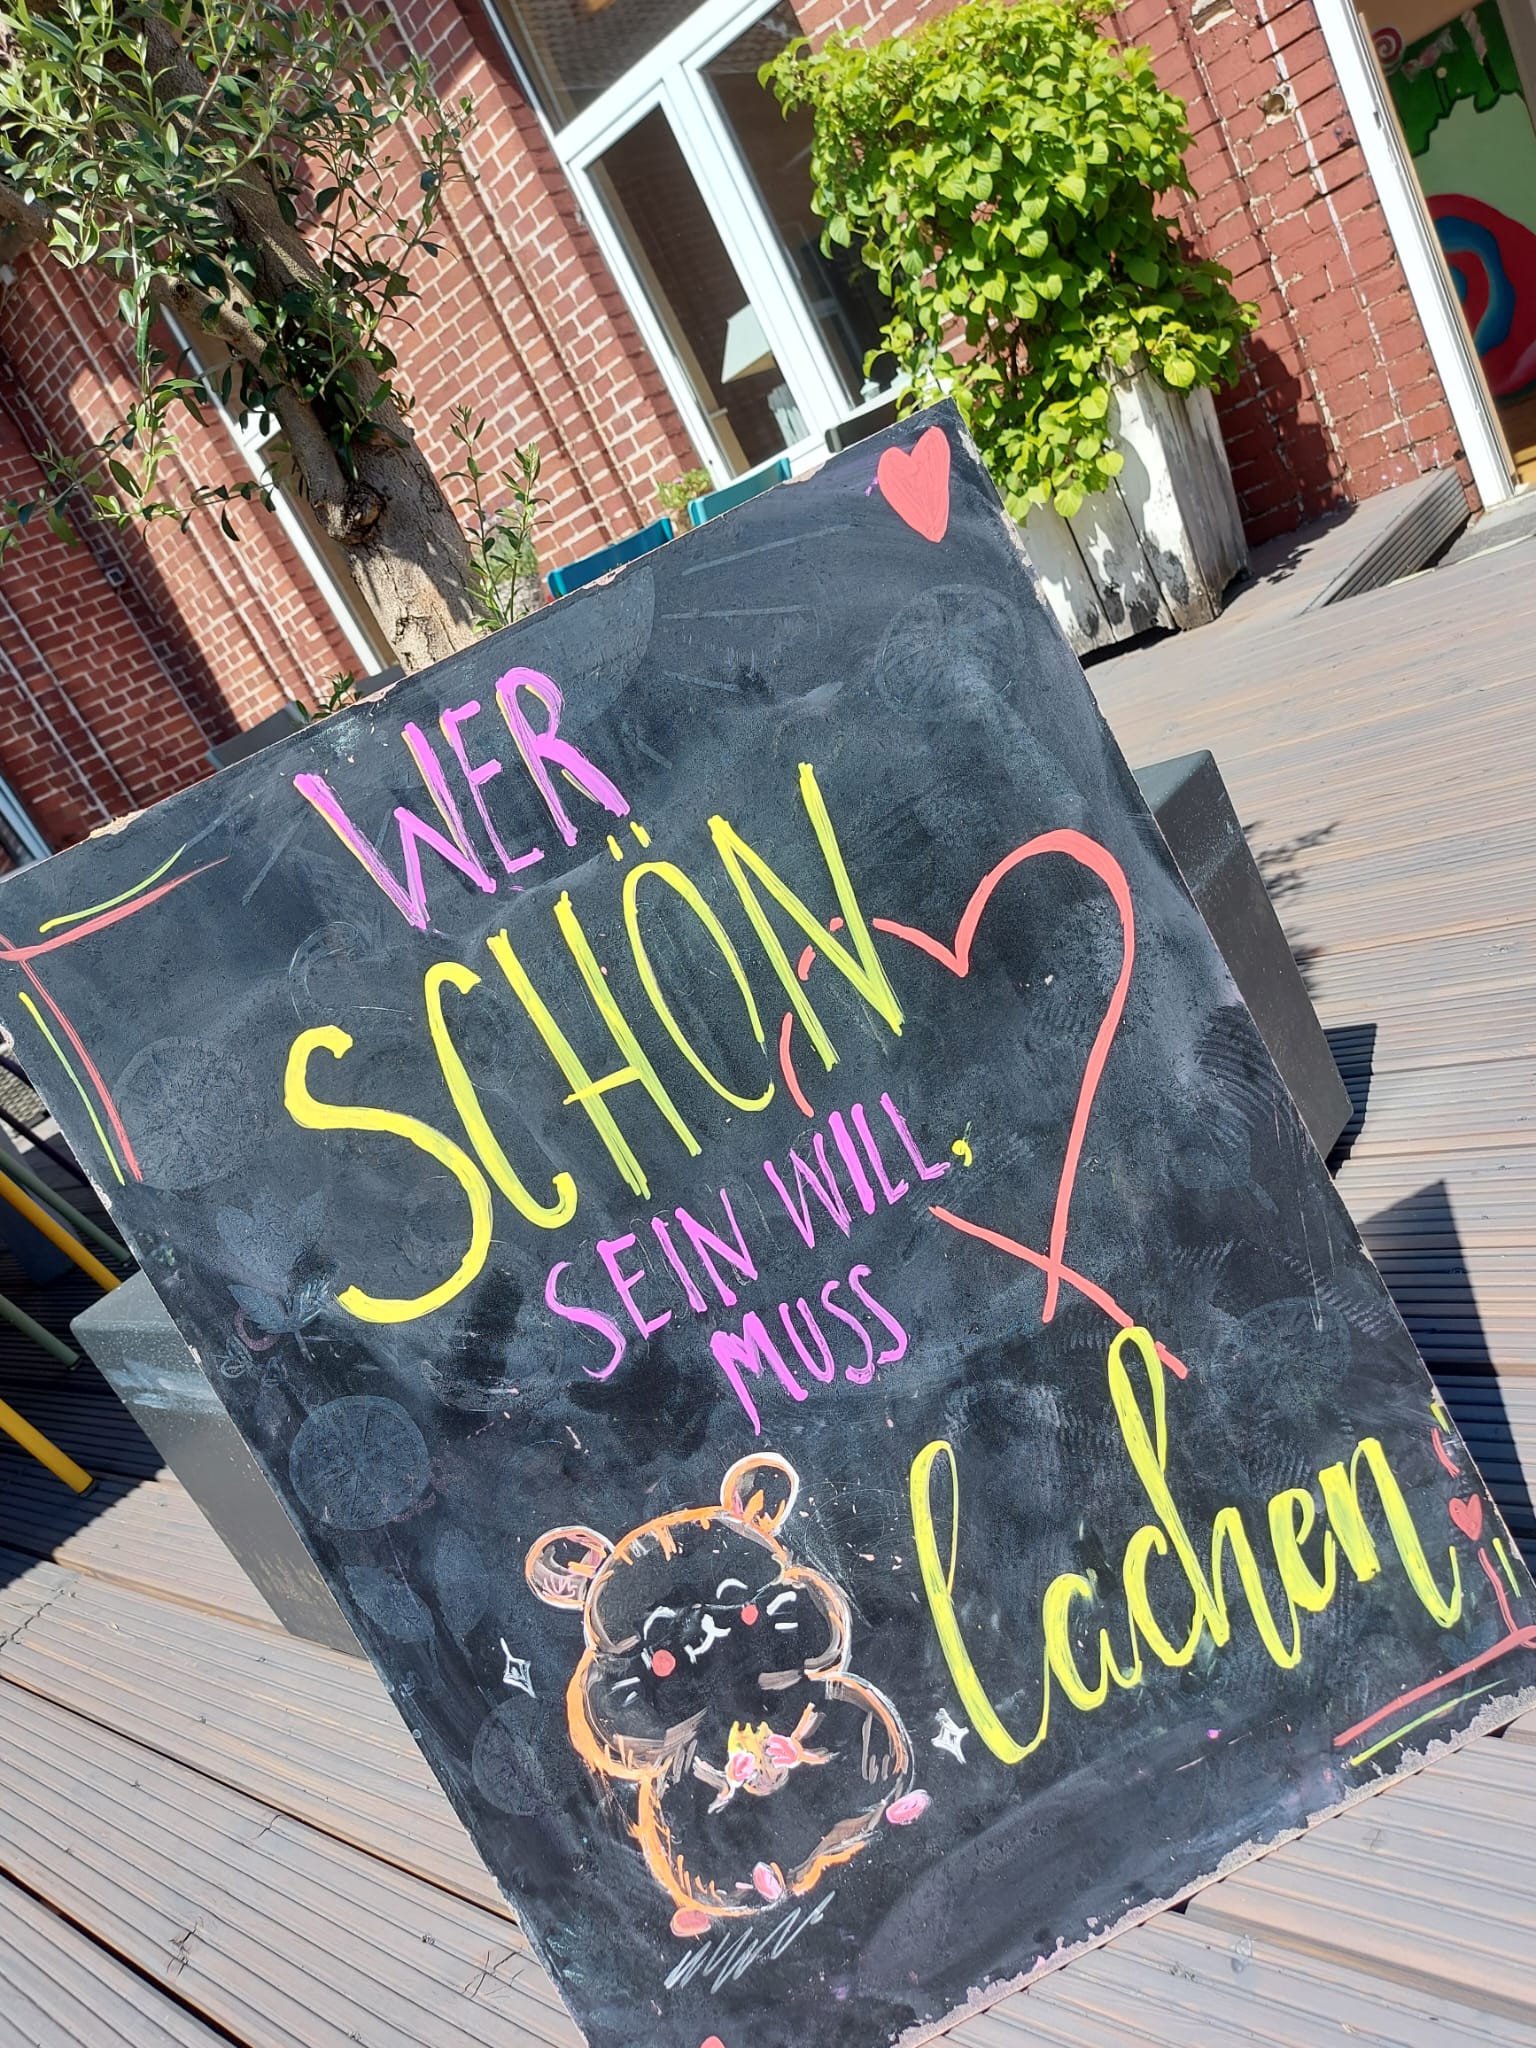 WER
SCHÖN
SEIN WILL,
MUSS
lachen